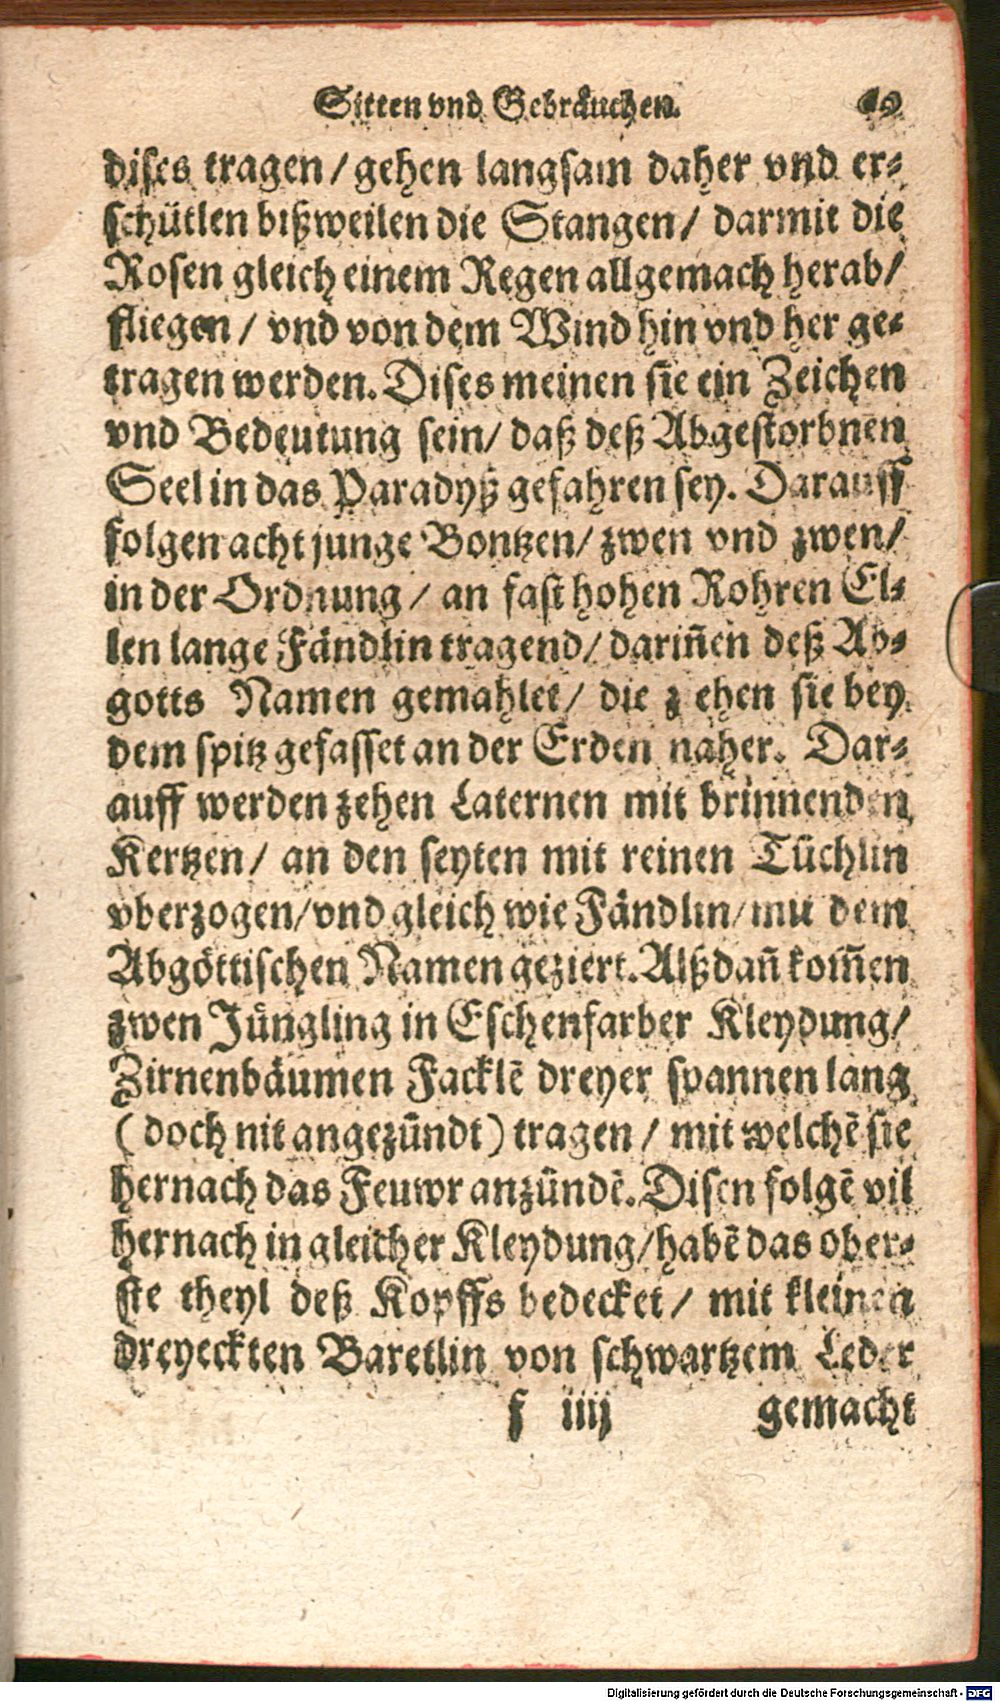 Sitten vnd Gebräuchen.
dises tragen / gehen langsam daher vnd er-
schütlen bißweilen die Stangen / darmit die
Rosen gleich einem Regen allgemach herab /
fliegen / vnd von dem Wind hin vnd her ge-
tragen werden. Dises meinen sie ein Zeichen
vnd Bedeutung sein / daß deß Abgestorbnen
Seel in das Paradyß gefahren sey. Darauff
folgen acht junge Bontzen / zwen vnd zwen /
in der Ordnung / an fast hohen Rohren El-
len lange Fändlin tragend / dariñen deß Ab-
gotts Namen gemahlet / die z ehen sie bey
dem spitz gefasset an der Erden naher. Dar-
auff werden zehen Laternen mit brinnenden
Kertzen / an den seyten mit reinen Tüchlin
vberzogen / vnd gleich wie Fändlin / mit dem
Abgöttischen Namen geziert. Alßdañ kom̃en
zwen Jüngling in Eschenfarber Kleydung /
Zirnenbäumen Facklẽ dreyer spannen lang
( doch nit angezündt ) tragen / mit welchẽ sie
hernach das Feuwr anzündẽ. Disen folgẽ vil
hernach in gleicher Kleydung / habẽ das ober-
ste theyl deß Kopffs bedecket / mit kleinen
dreyeckten Baretlin von schwartzem Leder
f iiij gemacht
Digitalisierung gefördert durch die Deutsche Forschungsgemeinschaft - DFG